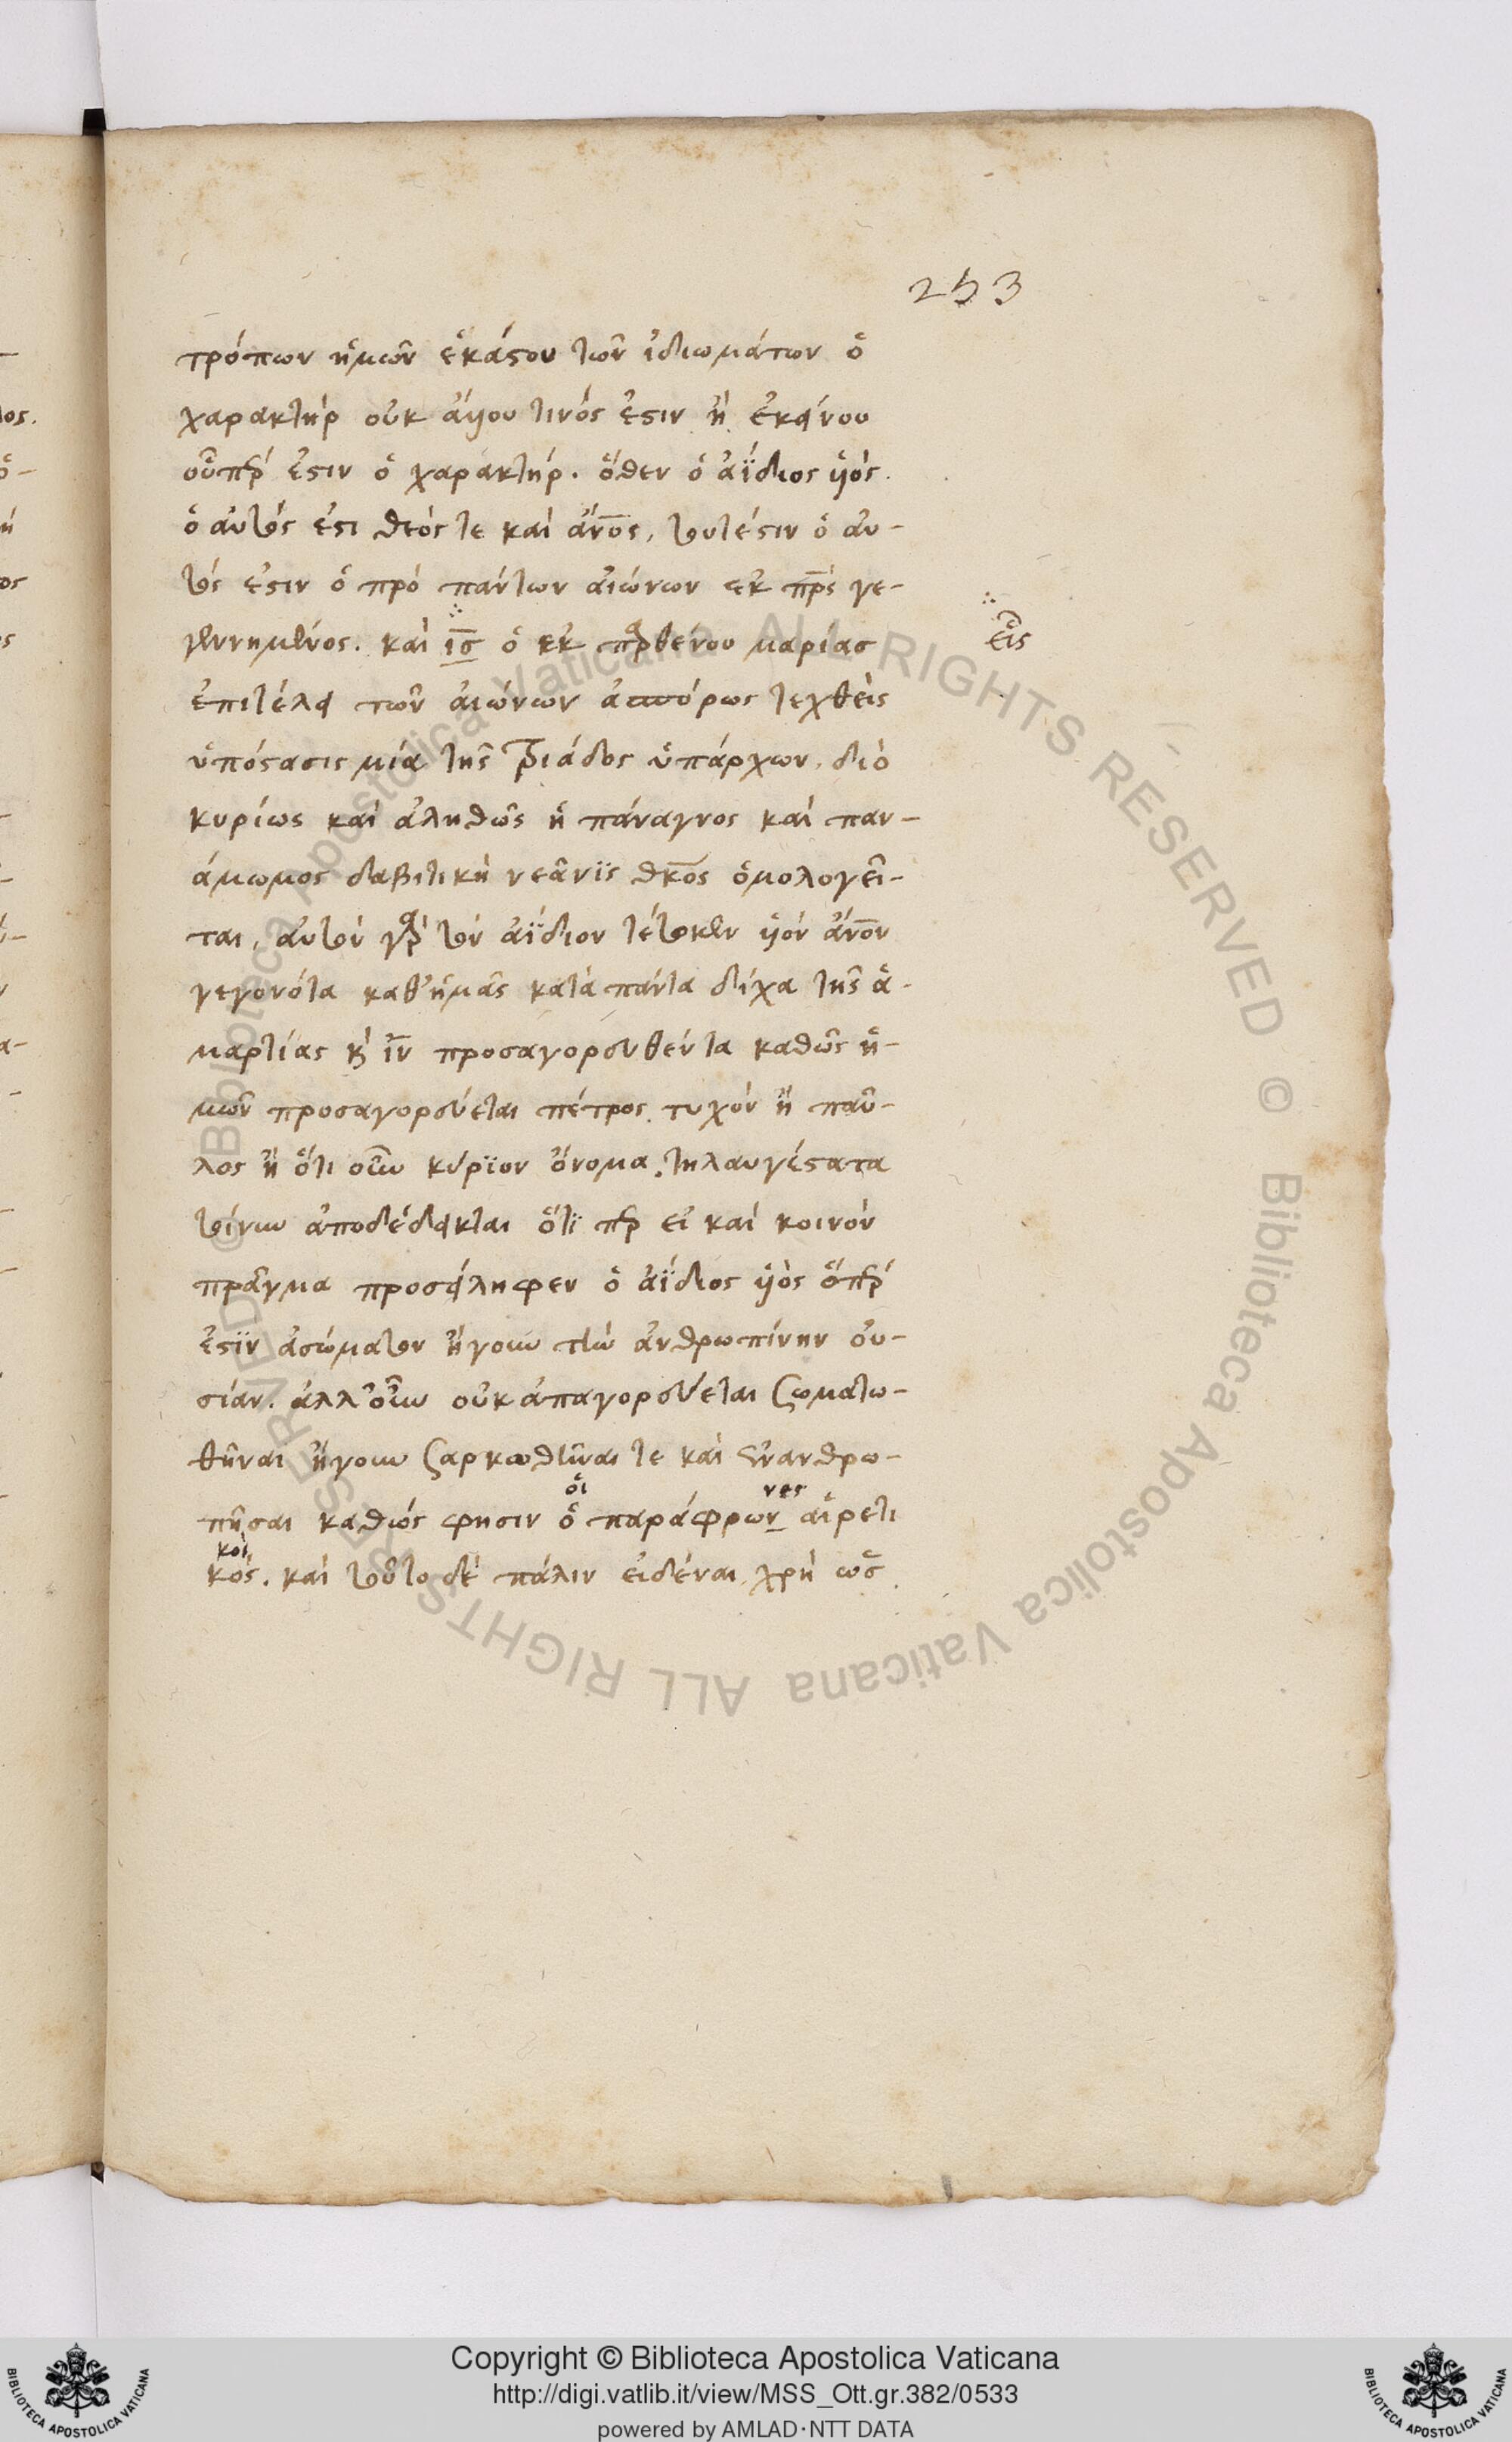 253
τρόπων ἡμῶν ἑκάστου τῶν ἰδιωμάτων ὁ
χαρακτὴρ οὐκ ἄλλου τινός ἐστιν ἢ ἐκείνου
οὗπερ ἐστὶν ὁ χαρακτήρ. ὅθεν ὁ ἀΐδιος υἱὸς
ὁ αὐτός ἐστι θεός τε καὶ ἄνος, τουτέστιν ὁ αὐ-
τός ἐστιν ὁ πρὸ πάντων αἰώνων ἐκ πρς γε-
γεννημένος. καὶ ις ὁ ἐκ παρθένου μαρίας
εἷς
ἐπιτέλει τῶν αἰώνων ἀσπόρως τεχθεὶς
ὑπόστασις μία τῆς τριάδος ὑπάρχων. διὸ
κυρίως καὶ ἀληθῶς ἡ πάναγνος καὶ παν-
άμωμος δαβιτικὴ νεᾶνϊς θκος ὁμολογεῖ-
ται, αὐτὸν γὰρ τὸν ἀΐδιον τέτοκεν υἱὸν ἄνον
γεγονότα καθ' ἡμᾶς κατὰ πάντα δίχα τῆς ἁ-
μαρτίας κ ιν προσαγορευθέντα καθὼς ἡ-
μῶν προσαγορεύεται πέτρος τυχὸν ἢ παῦ-
λος ἢ ὅτι οὖν κύρϊον ὄνομα. τηλαυγέστατα
τοίνυν ἀποδέδεικται ὅτϊπερ εἰ καὶ κοινὸν
πρᾶγμα προσείληφεν ὁ ἀΐδιος υἱὸς ὅπερ
ἐστϊν ἀσώματον ἤγουν τὴν ἀνθρωπίνην οὐ-
σίαν. ἀλλ' οὖν οὐκ ἀπαγορεύεται σωματω-
θῆναι ἤγουν σαρκωθῆναι τε καὶ ἐνανθρω-
οἱ νες
πῆσαι καθώς φησιν ὁ παράφρων αἱρετι
κοὶ
κός. καὶ τοῦτο δὲ πάλιν εἰδέναι χρὴ ὡς
Copyright © Biblioteca Apostolica Vaticana
http://digi.vatlib.it/view/MSS_Ott.gr.382/0533
powered by AMLAD·NTT DATA
BIBLIOTECA APOSTOLICA VATICANA
BIBLIOTECA APOSTOLICA VATICANA
© Biblioteca Apostolica Vaticana ALL RIGHTS RESERVED © Biblioteca Apostolica Vaticana ALL RIGHTS RESERVED